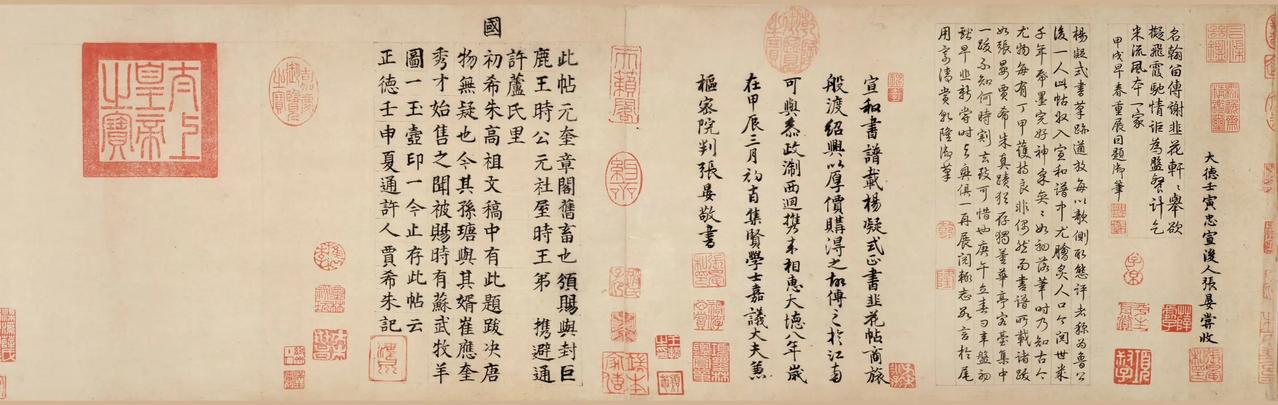 大德壬寅忠宣後人張晏嘗收
名翰留傳謝韭花軒軒舉欲
擬飛霞馳情詎為盤飧計乞
米流風本一家
甲戌早春重展因題御筆
楊凝式書筆跡遒放每以欹側取態評者稱為魯公
後一人此帖收入宣和譜中尤膾炙人口今閱世幾
千年帋墨完好神采奕奕如初落筆時乃知古今
尤物每有丁甲護持良非偶然而書譜所載諸跋
如張晏賈希朱真蹟猶存獨董華亭容臺集中
一跋不知何時割去殊可惜也庚午立春日辛盤初
獻早韭新嘗時與興俱一再展閱輒志數言於尾
用寄清賞乾隆御筆
宣和書譜載楊凝式正書韭花帖商旅
般渡紹興以厚價購得之故傳之於江南
可與忝政淛西迴攜來相惠大德八年歲
在甲辰三月初吉集賢學士嘉議大夫兼
樞密院判張晏敬書
國
此帖元奎章閣舊畜也頒賜與封巨
鹿王時公元社屋時王弟 攜避通
許蘆氏里
初希朱高祖文稿中有此題跋決唐
物無疑也今其孫瑭與其婿崔應奎
秀才始售之聞被賜時有蘇武牧羊
圖一玉壺印一今止存此帖云
正德壬申夏通許人賈希朱記
太上
皇帝
之寶
天籟閣